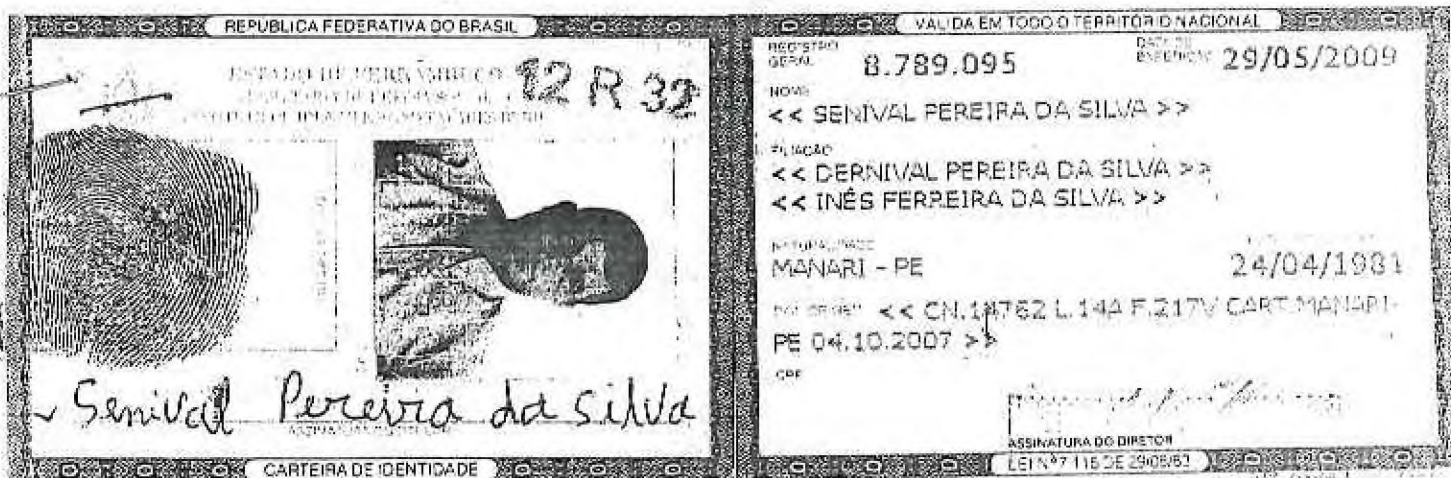 REPUBLICA FEDERATIVA DO BRASIL
ESTADO DE PERNAMBUCO
12 R 32
Senival Pereira da Silva
CARTEIRA DE IDENTIDADE
VALIDA EM TODO O TERRITÓRIO NACIONAL
REGISTRO GERAL 8.789.095 DATA DE EXPEDIÇÃO 29/05/2009
NOME
<< SENIVAL PEREIRA DA SILVA >>
FILIAÇÃO
<< DERNIVAL PEREIRA DA SILVA >>
<< INÊS FERREIRA DA SILVA >>
NATURALIDADE
MANARI - PE 24/04/1981
DOC ORIGEM << CN.14762 L.14A F.217V CART.MANARI-
PE 04.10.2007 >>
CPF
ASSINATURA DO DIRETOR
LEI Nº 7.116 DE 29/08/83